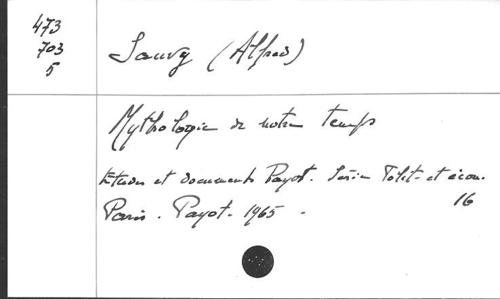 473
703
5
Sauvy (Alfred)
Mythologie de notre temps
Etudes et documents Payot. Série Polit. et écon.
16
Paris. Payot. 1965.